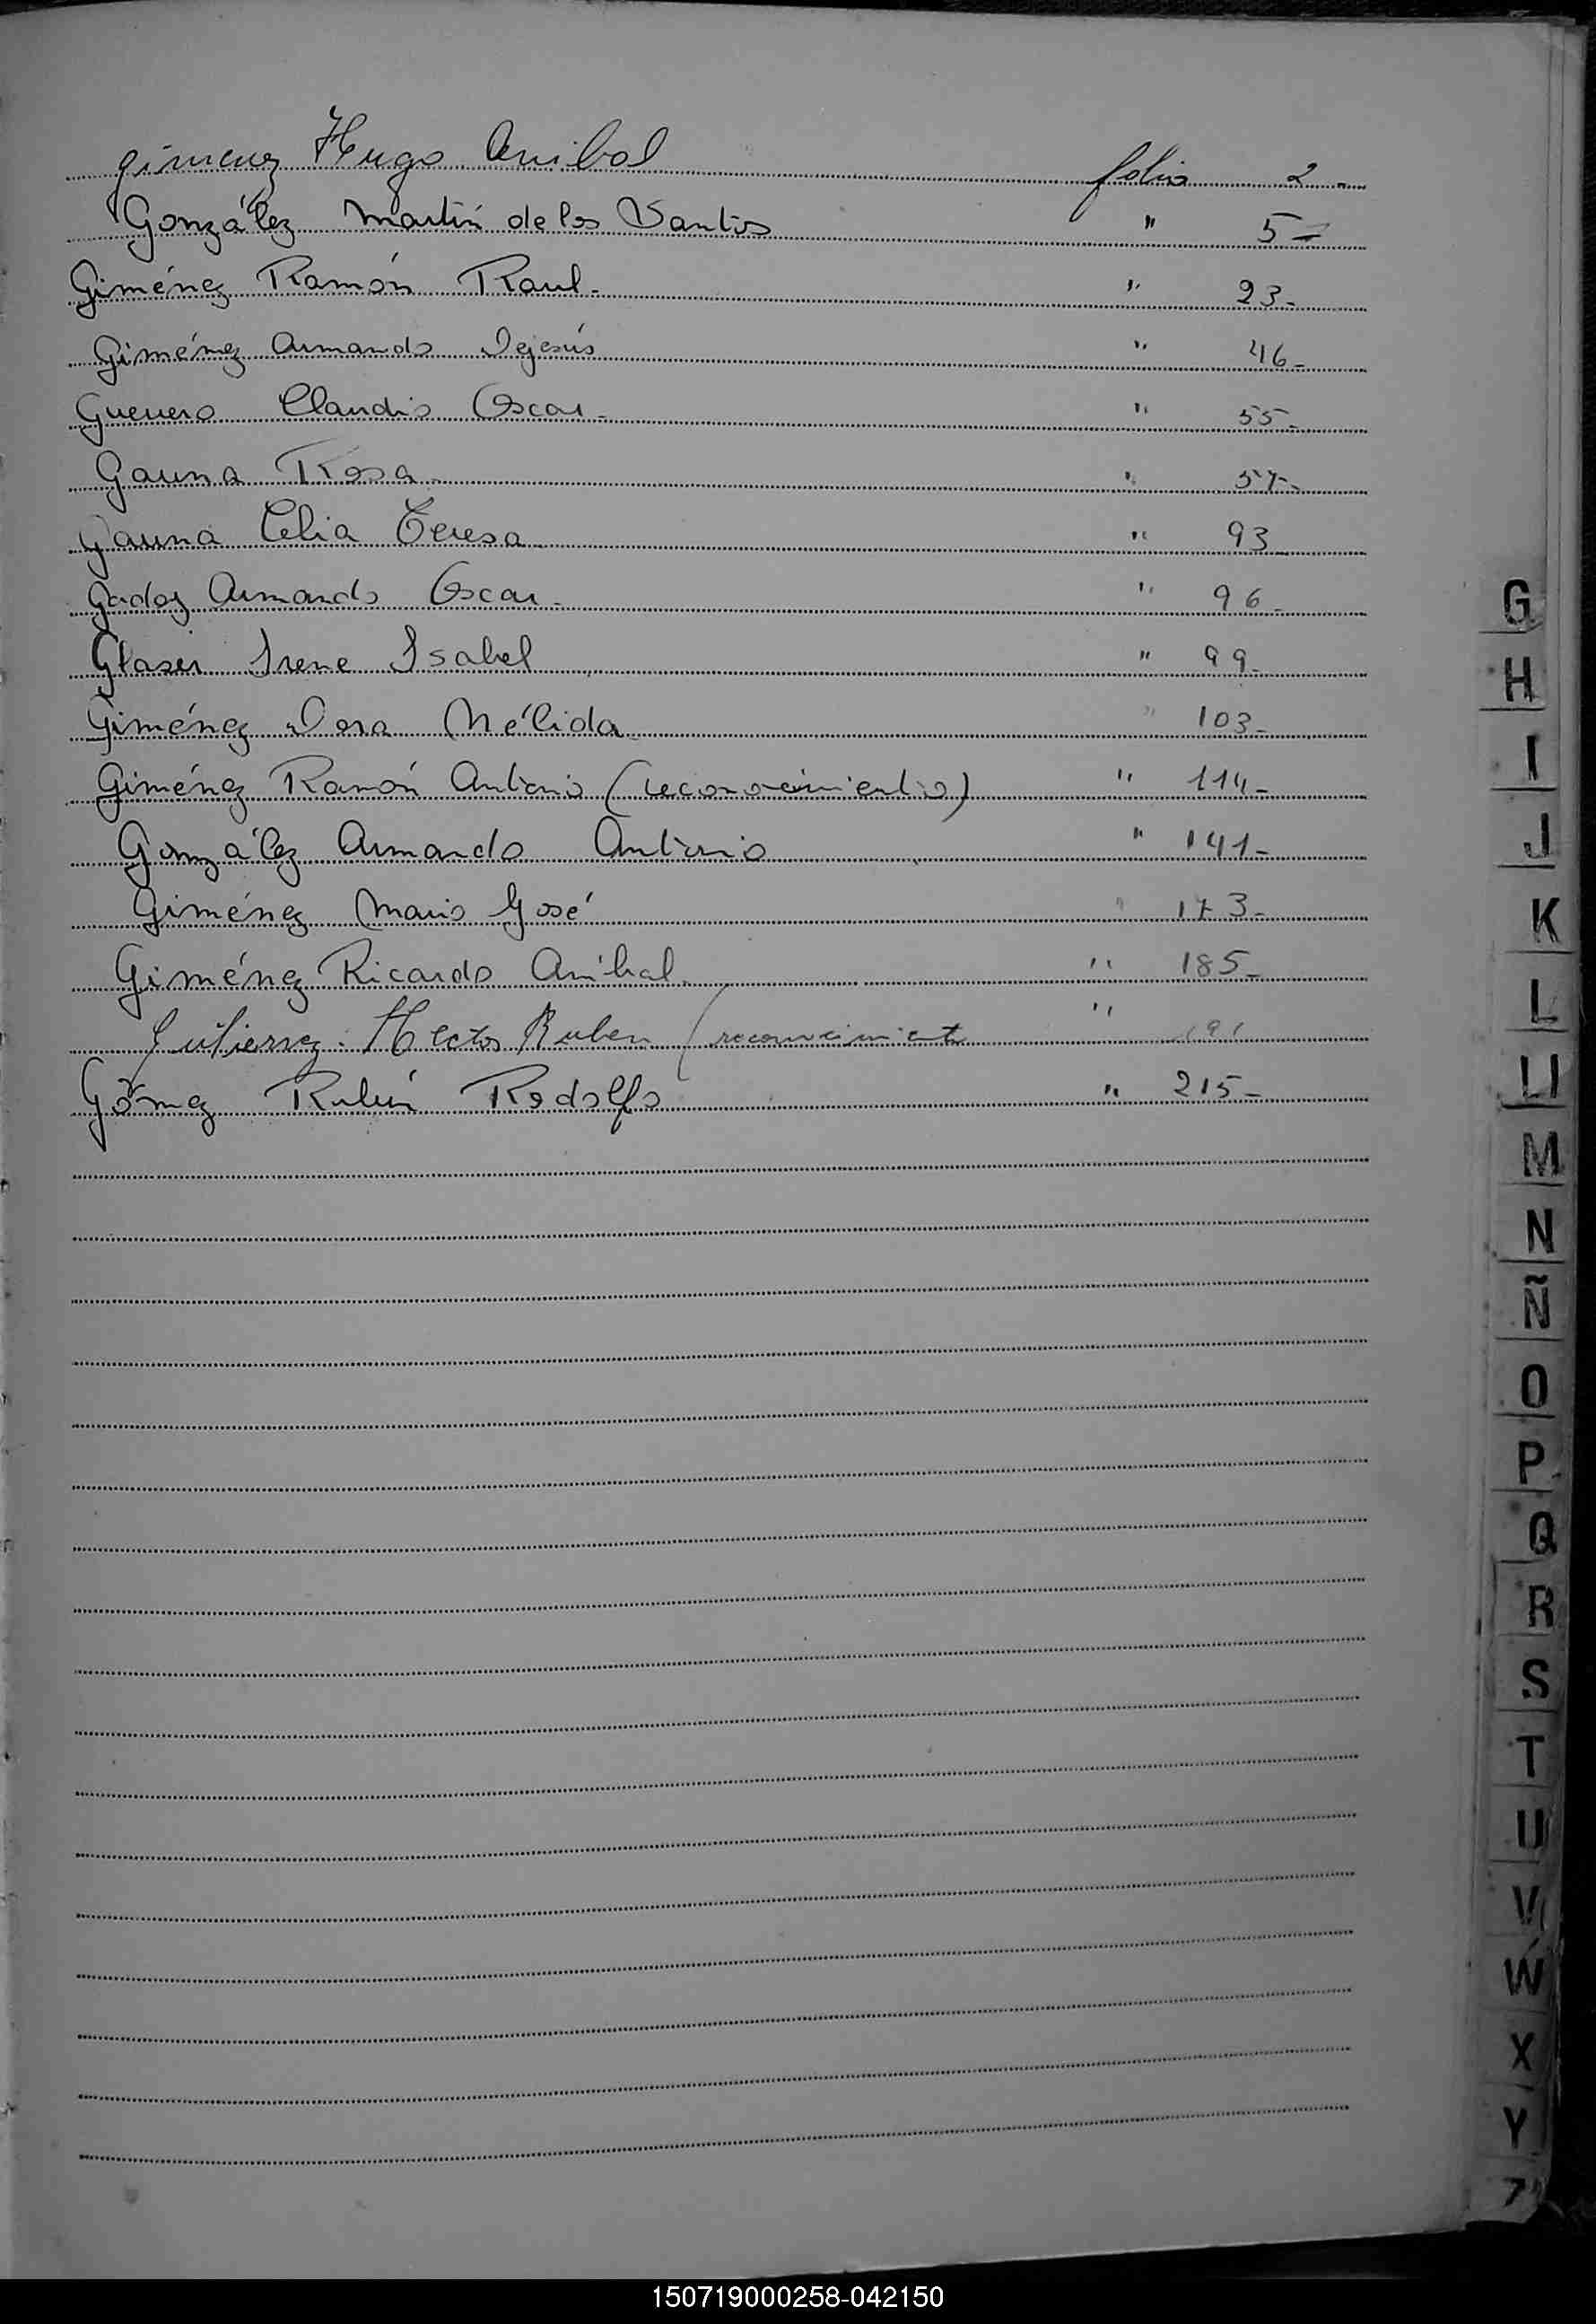 Gimenez Hugo Anibal folio 2-
González Martín de los Santos " 5-
Giménez Ramón Raul- " 23-
Giménez Armando Dejesús " 46-
Guerrero Claudio Oscar- " 55-
Gauna Rosa- " 57-
Gauna Celia Teresa- " 93
Godoy Armando Oscar- " 96-
Glaser Irene Isabel " 99-
Giménez Dora Nélida- " 103-
Giménez Ramón Antonio (reconocimiento) " 114-
González Armando Antonio " 141-
Giménez Mario José " 173-
Giménez Ricardo Aníbal " 185-
Gutierrez Hector Ruben (reconocimiento " 191
Gómez Rubén Rodolfo " 215-
G
H
I
J
K
L
Ll
M
N
Ñ
O
P
Q
R
S
T
U
V
W
X
Y
Z
150719000258-042150